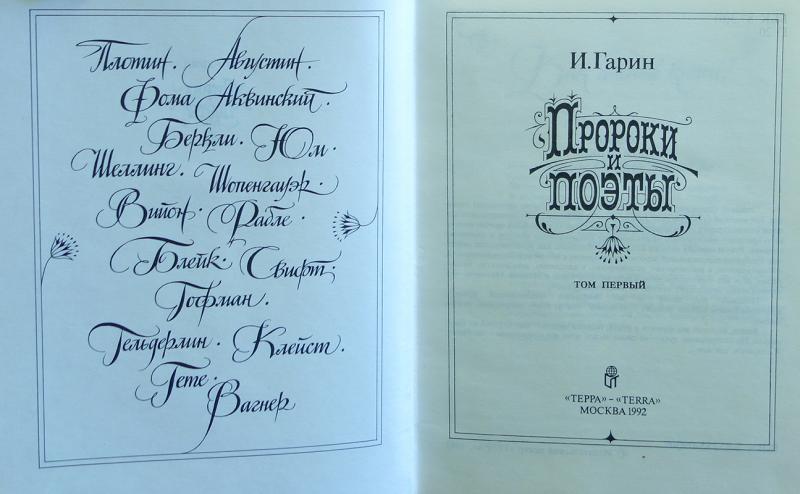 Плотин. Августин.
Фома Аквинский.
Беркли. Юм.
Шеллинг. Шопенгауэр.
Вийон. Рабле.
Блейк. Свифт.
Гофман.
Гельдерлин. Клейст.
Гете.
Вагнер
И. Гарин
Пророки
и
поэты
ТОМ ПЕРВЫЙ
«ТЕРРА» – «TERRA»
МОСКВА 1992